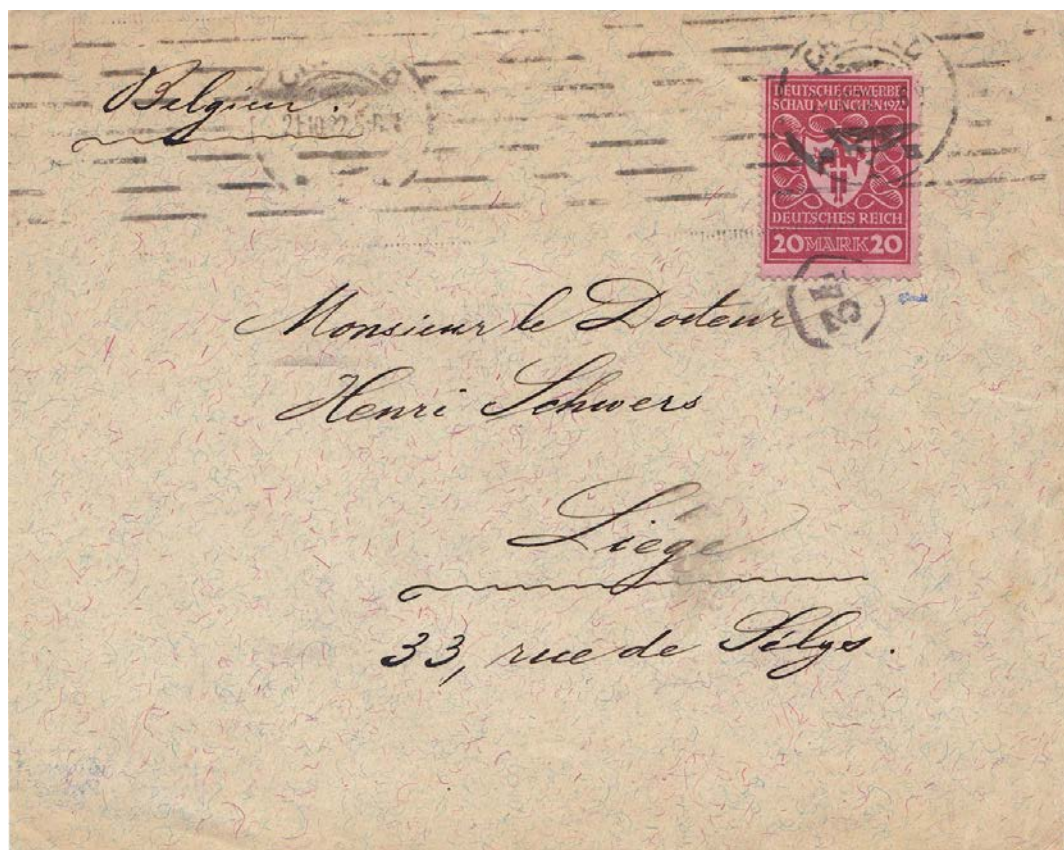 Belgien.
21.10.22.5-6.N
DEUTSCHE GEWERBE
SCHAU MÜNCHEN 1922
DEUTSCHES REICH
20 MARK 20
Monsieur le Docteur
Henri Schwers
Liége
33, rue de Sélys.